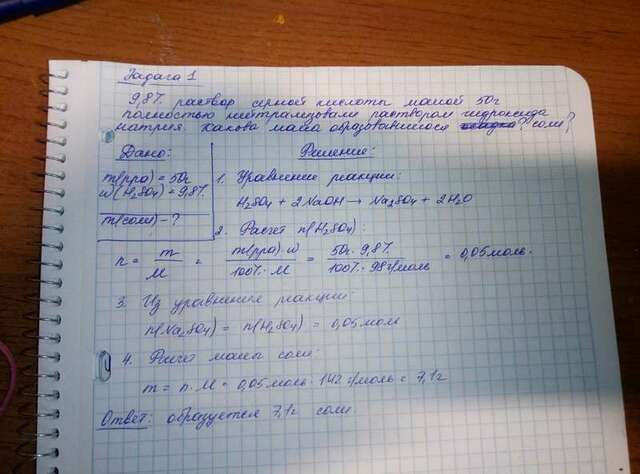 Задача 1
9,8% раствор серной кислоты массой 50г
полностью нейтрализовали раствором гидроксида
натрия. Какова масса образовавшейся соли?
Дано:
m(р-ра) = 50г
ω(H₂SO₄) = 9,8%
m(соли) - ?
Решение:
1. Уравнение реакции:
H₂SO₄ + 2NaOH → Na₂SO₄ + 2H₂O
2. Расчет n(H₂SO₄):
n = m/M = m(р-ра)·ω/100%·M = 50г·9,8%/100%·98г/моль = 0,05моль.
3. Из уравнения реакции:
n(Na₂SO₄) = n(H₂SO₄) = 0,05моль
4. Расчет массы соли:
m = n·M = 0,05моль·142г/моль = 7,1г
Ответ: образуется 7,1г соли.